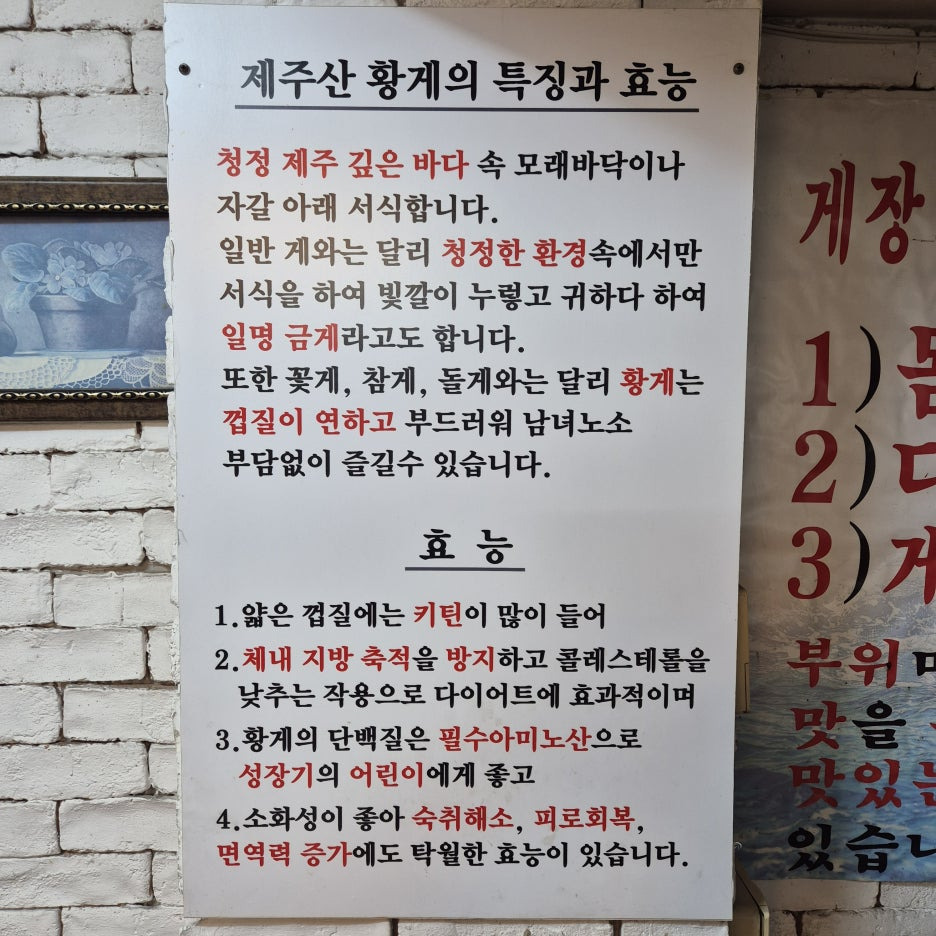 제주산 황게의 특징과 효능
청정 제주 깊은 바다 속 모래바닥이나
자갈 아래 서식합니다.
일반 게와는 달리 청정한 환경속에서만
서식을 하여 빛깔이 누렇고 귀하다 하여
일명 금게라고도 합니다.
또한 꽃게, 참게, 돌게와는 달리 황게는
껍질이 연하고 부드러워 남녀노소
부담없이 즐길수 있습니다.
효 능
1.얇은 껍질에는 키틴이 많이 들어
2.체내 지방 축적을 방지하고 콜레스테롤을
낮추는 작용으로 다이어트에 효과적이며
3.황게의 단백질은 필수아미노산으로
성장기의 어린이에게 좋고
4.소화성이 좋아 숙취해소, 피로회복,
면역력 증가에도 탁월한 효능이 있습니다.
게장
1)
2)
3)
부위
맛을
맛있는
있습니